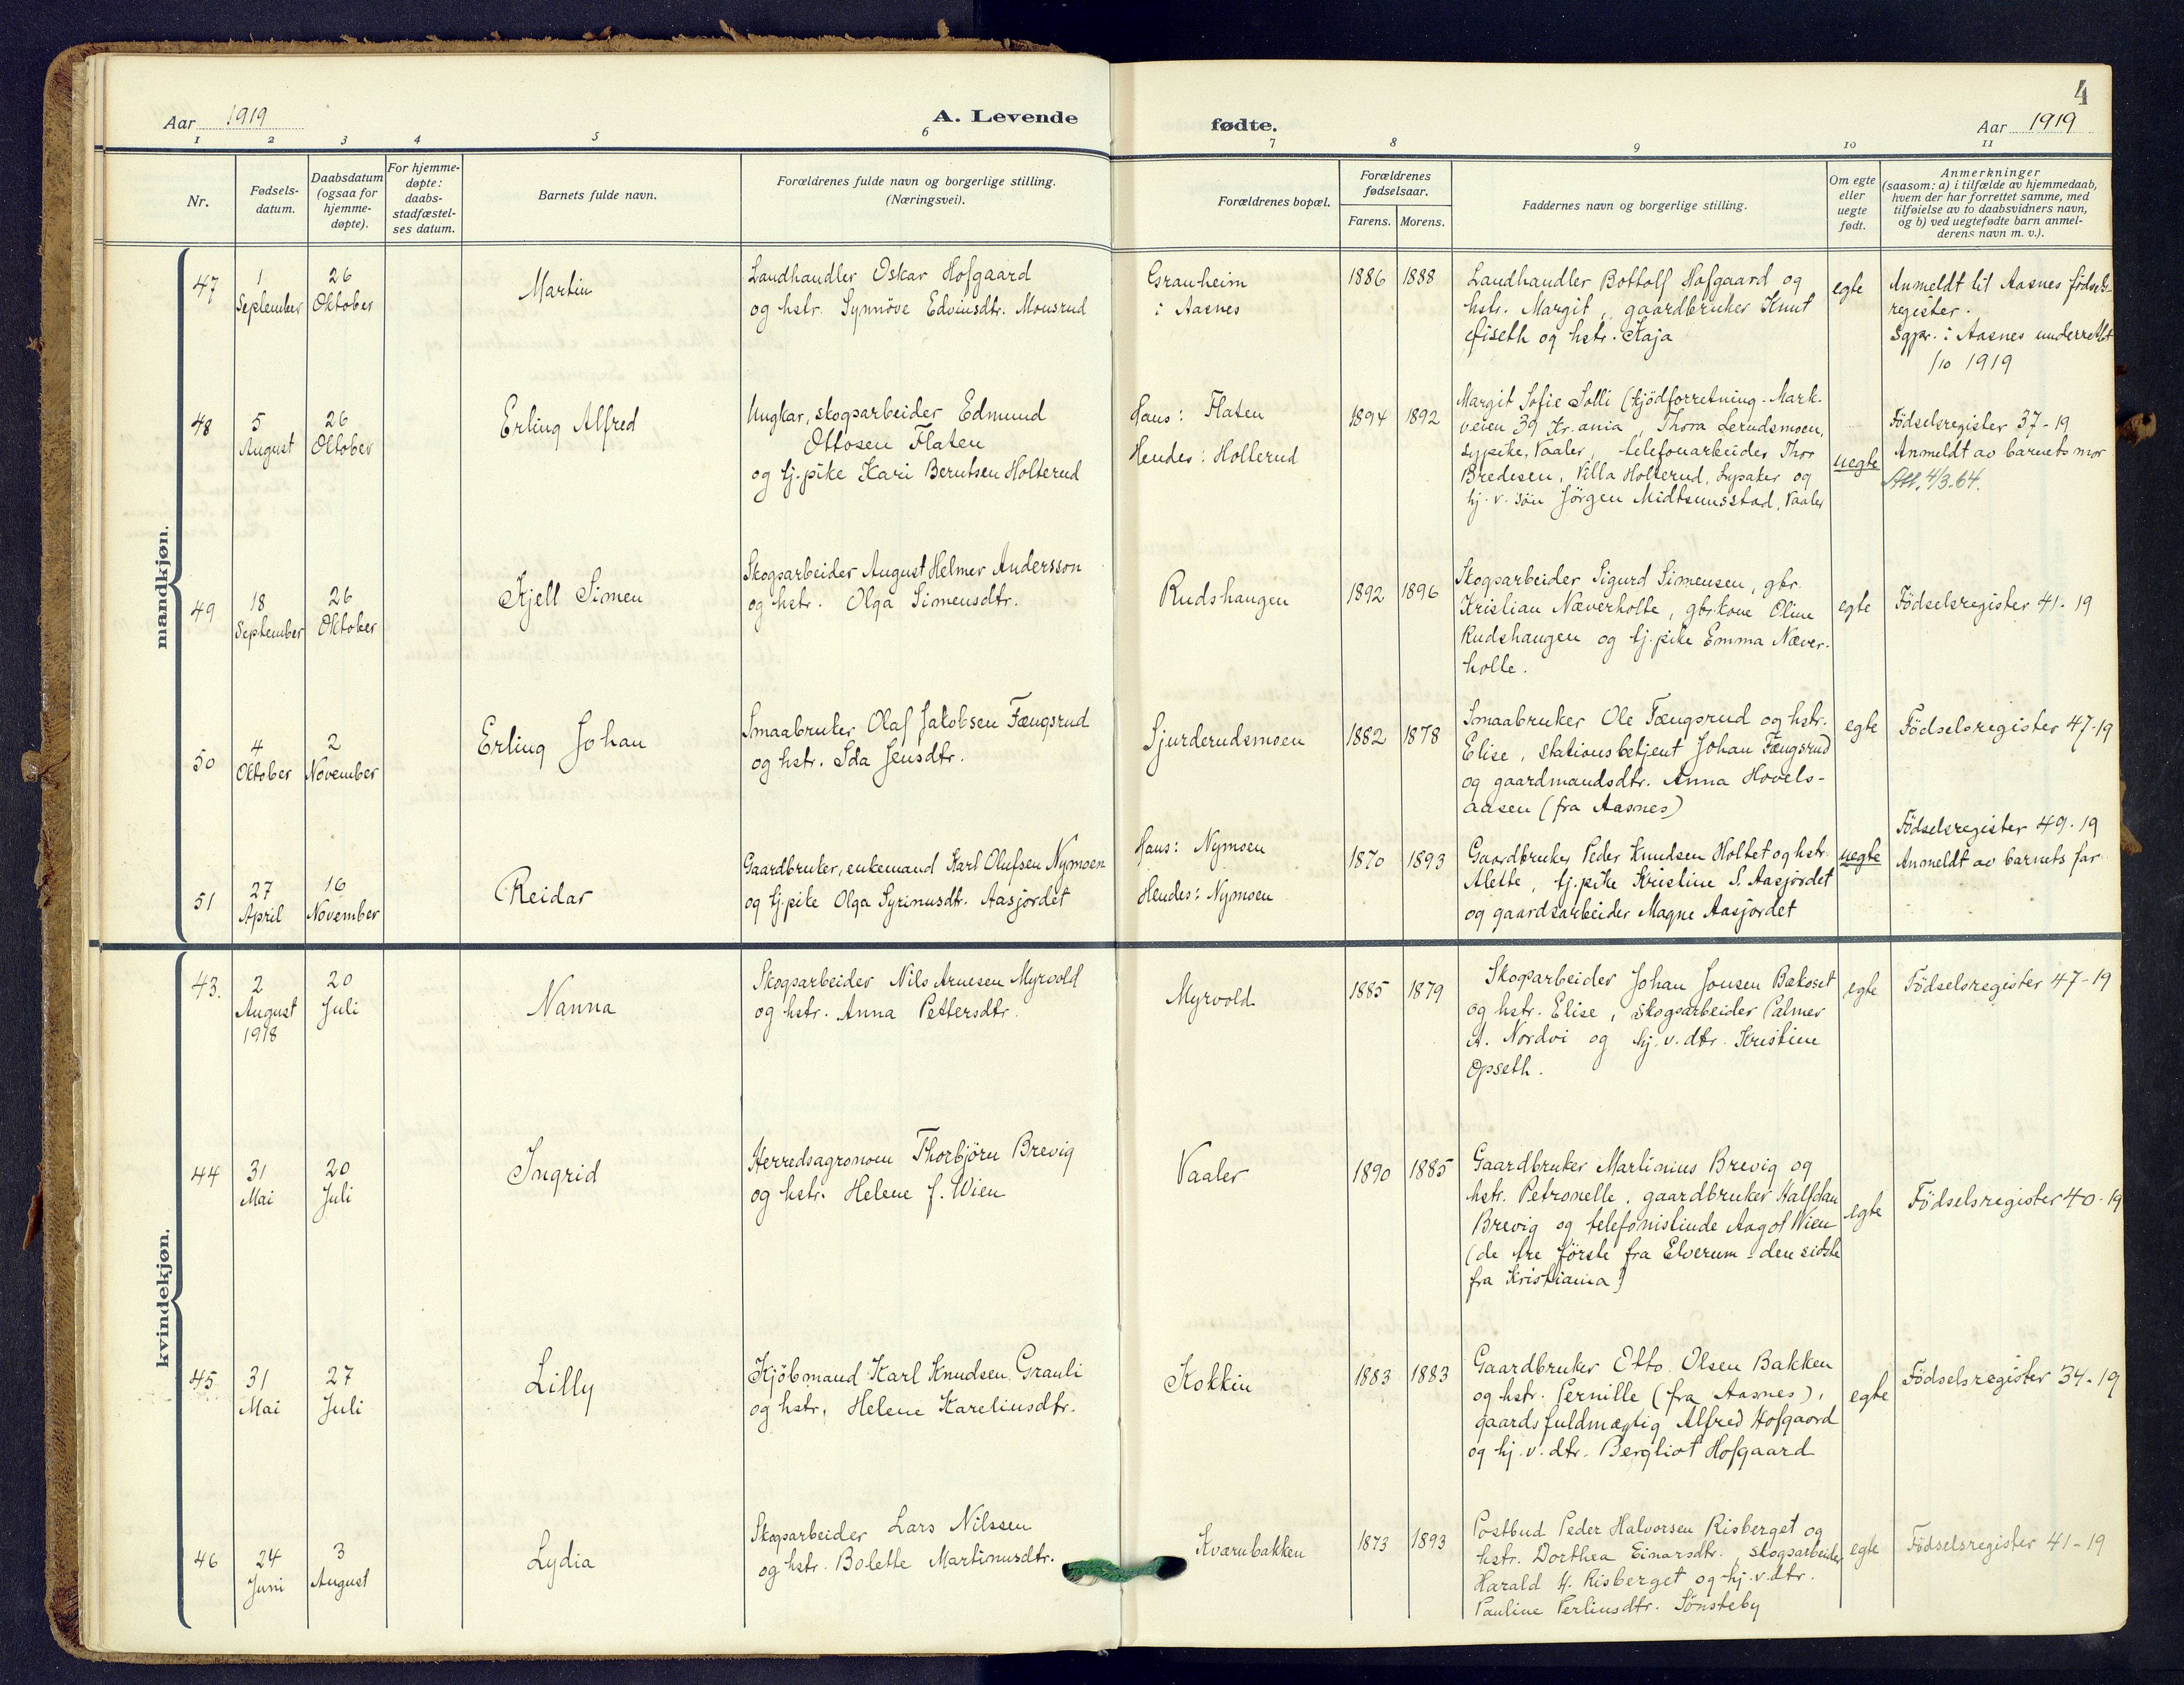 Aar 1919
A. Levende
1 2 3 4 5 6
Nr.
Fødsels-
datum.
Daabsdatum
(ogsaa for
hjemme-
døpte).
For hjemme-
døpte:
daabs-
stadfæstel-
ses datum.
Barnets fulde navn.
Forældrenes fulde navn og borgerlige stilling.
(Næringsvei).
mandkjøn.
47
1
September
26
Oktober
Martin
Landhandler Oskar Hofgaard
og hstr. Synnöve Edvinsdtr. Monsrud
48
5
August
26
Oktober
Erling Alfred
Ungkar, skogsarbeider Edmund
Ottosen Flaten
og tj.pike Kari Berntsen Holterud
49
18
September
26
Oktober
Kjell Simen
Skogsarbeider August Helmer Andersson
og hstr. Olga Simensdtr.
50
4
Oktober
2
November
Erling Johan
Smaabruker Olaf Jakobsen Fængsrud
og hstr. Ida Jensdtr.
51
27
April
16
November
Reidar
Gaardbruker, enkemand Karl Olufsen Nymoen
og tj.pike Olga Syrinusdtr. Aasjordet
kvindekjøn.
43.
2
August
1918
20
Juli
Nanna
Skogsarbeider Nils Arnesen Myrvold
og hstr. Anna Pettersdtr.
44
31
Mai
20
Juli
Ingrid
Herredsagronom Thorbjörn Brevig
og hstr. Helene f. Wien
45
31
Mai
27
Juli
Lilly
Kjöbmand Karl Knudsen Granli
og hstr. Helene Kareliusdtr.
46
24
Juni
3
August
Lydia
Skogsarbeider Lars Nilssen
og hstr. Bolette Martinusdtr.
4
fødte.
Aar 1919
7 8 9 10 11
Forældrenes bopæl.
Forældrenes
fødselsaar.
Farens. Morens.
Faddernes navn og borgerlige stilling.
Om egte
eller
uegte
født.
Anmerkninger
(saasom: a) i tilfælde av hjemmedaab,
hvem der har forrettet samme, med
tilføielse av to daabsvidners navn,
og b) ved uegtefødte barn anmel-
derens navn m. v.).
Granheim
i Aasnes
1886 1888
Landhandler Bottolf Hofgaard og
hstr. Margit, gaardbruker Knut
og hstr. Kaja
egte
Anmeldt til Aasnes födsels-
register.
Sgpr. i Aasnes underrettet
/10 1919
Hans: Flaten
Hendes: Holterud
1894 1892
Margit Sofie Solli (kjödforretning - Mark-
veien 39 Kr.ania, Thora Lerudsmoen,
sypike, Vaaler, telefonarbeider Thor
Bredesen, Villa Holterud, Lysaker og
hj. v. sön Jörgen Midtsundstad, Vaaler
uegte
Födselsregister 37-19
Anmeldt av barnets mor
Att. 4/3.64.
Rudshaugen
1892 1896
Skogsarbeider Sigurd Simensen, gbr.
Kristian Næverholte, gbr.kone Oline
Rudshaugen og tj.pike Emma Næver-
holte.
egte
Födselsregister 41-19
Sjurderudsmoen
1882 1878
Smaabruker Ole Fængsrud og hstr.
Elise, stationsbetjent Johan Fængsrud
og gaardmandsdtr. Anna Hovels-
aasen (fra Aasnes)
egte
Födselsregister 47-19
Hans: Nymoen
Hendes: Nymoen
1870 1893
Gaardbruker Peder Knudsen Holtet og hstr.
Alette, tj.pike Kristine S. Aasjordet
og gaardsarbeider Magne Aasjordet
uegte
Födselsregister 49-19
Anmeldt av barnets far
Myrvold
1885 1879
Skogsarbeider Johan Jonsen Bækoset
og hstr. Elise, skogsarbeider Palmer
A. Nordvi og hj. v. dtr. Kristine
Opseth.
egte
Födselsregister 47-19
Vaaler
1890 1885
Gaardbruker Martinius Brevig og
hstr. Petronelle, gaardbruker Halfdan
Brevig og telefonistinde Aagot Wien
(de tre förste fra Elverum - den sidste
fra Kristiania)
egte
Födselsregister 40-19
Kokkin
1883 1883
Gaardbruker Otto Olsen Bakken
og hstr. Pernille (fra Aasnes),
gaardsfuldmægtig Alfred Hofgaard
og hj. v. dtr. Bergliot Hofgaard
egte
Födselsregister 34-19
Kværnbakken
1873 1893
Postbud Peder Halvorsen Risberget og
hstr. Dorthea Einarsdtr., skogsarbeider
Harald H. Risberget og hj. v. dtr.
Pauline Perliusdtr. Sönsteby
egte
Födselsregister 41-19